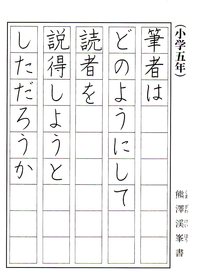 (小学五年)
筆者は
どのようにして
読者を
説得しようと
しただろうか
熊澤渓峯書
くまざわけいほう